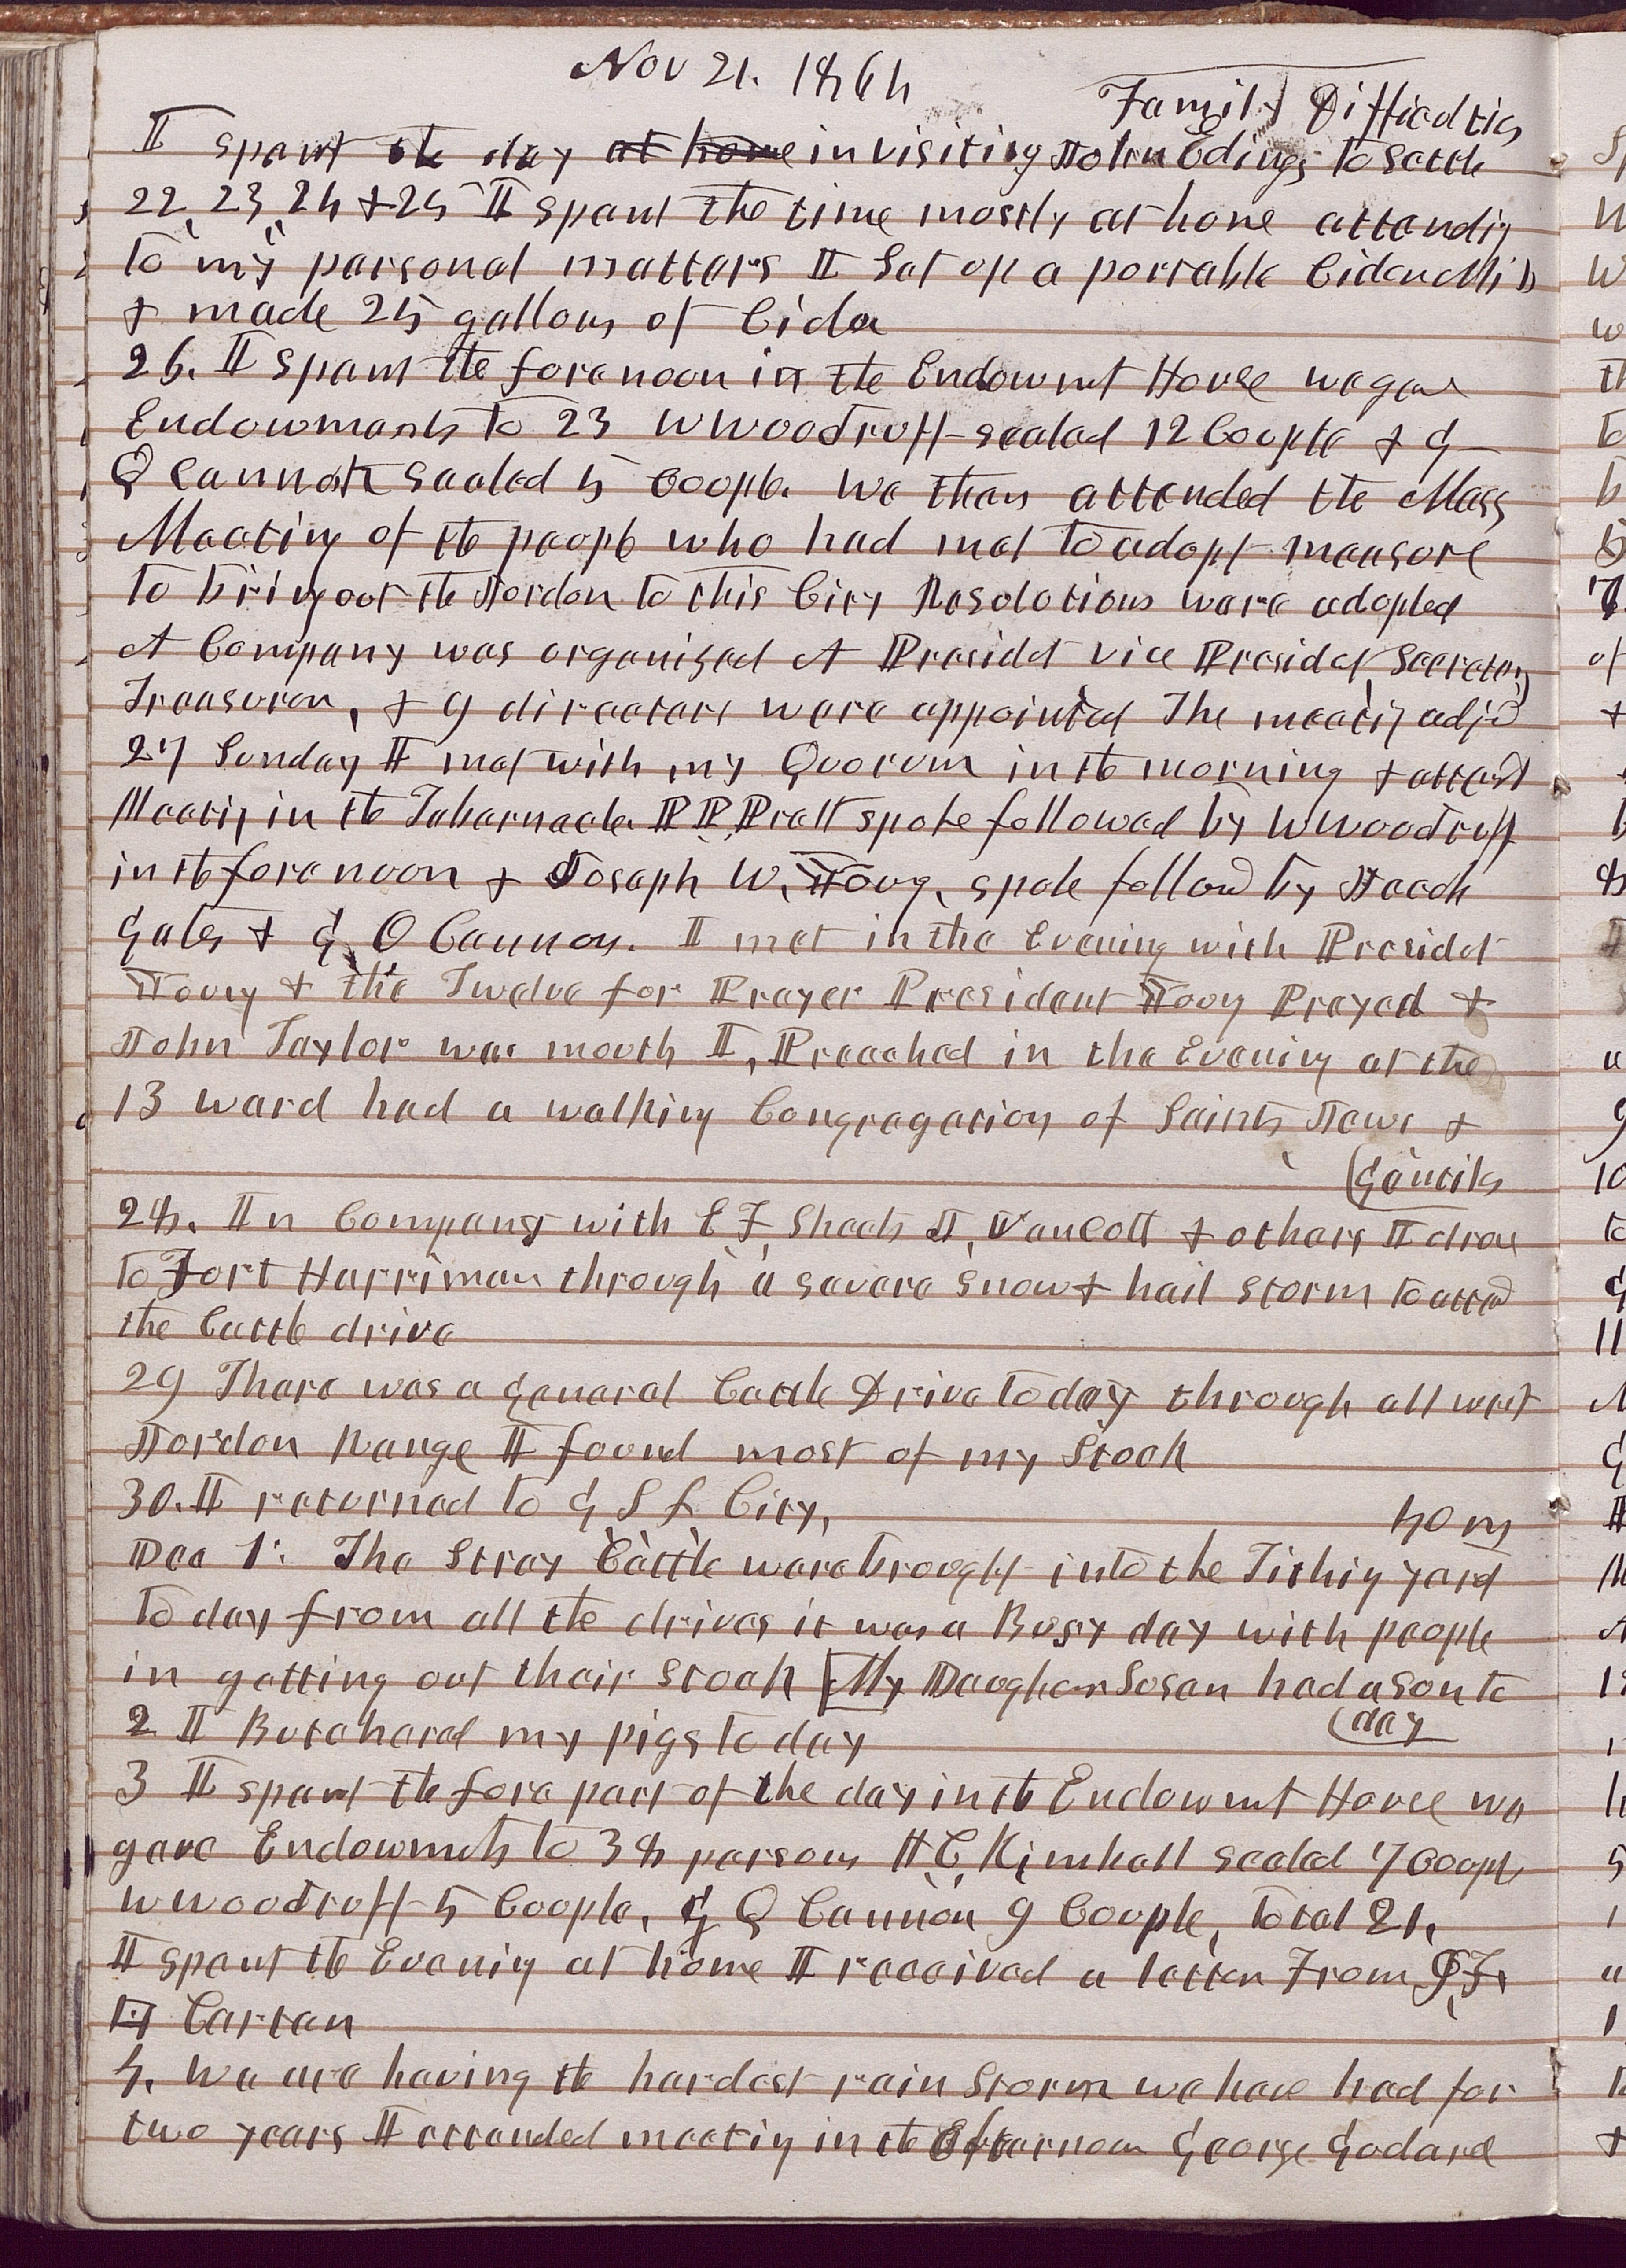 Nov 21. 1864
Family Difficulties
I spent the day at home in visiting John Edings to settle
22, 23, 24 & 25 I spent the time mostly at home attending
to my personal matters I set up a portable Cider Mill
& made 25 gallons of Cider
26. I spent the forenoon in the Endowmt House we gave
Endowments to 23 W Woodruff sealed 12 Couple & G
Q Cannon sealed 5 Couple. we then attended the Mass
Meeting of the people who had met to adopt measure
to bring out the Jordon to this City Resolutions were adopted
A Company was organized A Presidet vice Presidet, Secretary
Treasurer, & 9 directors were appointed The meeting adjd
27 Sunday I met with my Quorum in the morning & attend
Meeting in the Tabernacle P P Pratt spoke followed by W Woodruff
in the forenoon & Joseph W. Young, spoke followd by Jacob
Gates & G Q Cannon. I met in the Evening with Presidet
Young & the Twelve for Prayer President Young Prayed &
John Taylor was mouth I, Preached in the Evening at the
13 ward had a walking Congregation of Saints Jews &
(Gentiles
28. In Company with E F, Sheets J, VanCott & others I drove
to Fort Harriman through a severe snow & hail storm to attend
the Cattle drive
29 There was a general Cattle Drive to day through all west
Jordon Range I found most of my Stock
30. I returned to G S L City, 40 m
Dec 1. The Stray Cattle were brought into the Tithing yard
to day from all the drives it was a Busy day with people
in getting out their stock [My Daughter Susan had a son to
(day
2 I Butchered my pigs to day
3 I spent the fore part of the day in the Endowmt House we
gave Endowmets to 38 persons H C, Kimball sealed 7 Coople
W Woodruff 5 Coople, G Q Cannon 9 Couple, total 21.
I spent the Evening at home I received a letter From
Carter
4. We are having the hardest rain Storm we have had for
two years I attended meeting in the Afternoon George Godard